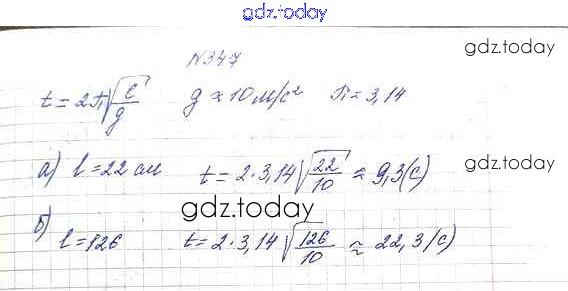 gdz.today
N347
gdz.today
t = 2π√(l/g) g ≈ 10 м/с² π = 3,14
а) l = 22 см t = 2·3,14√(22/10) ≈ 9,3 (с)
gdz.today
gdz.today
б) l = 126 t = 2·3,14√(126/10) ≈ 22,3 (с)
gdz.today